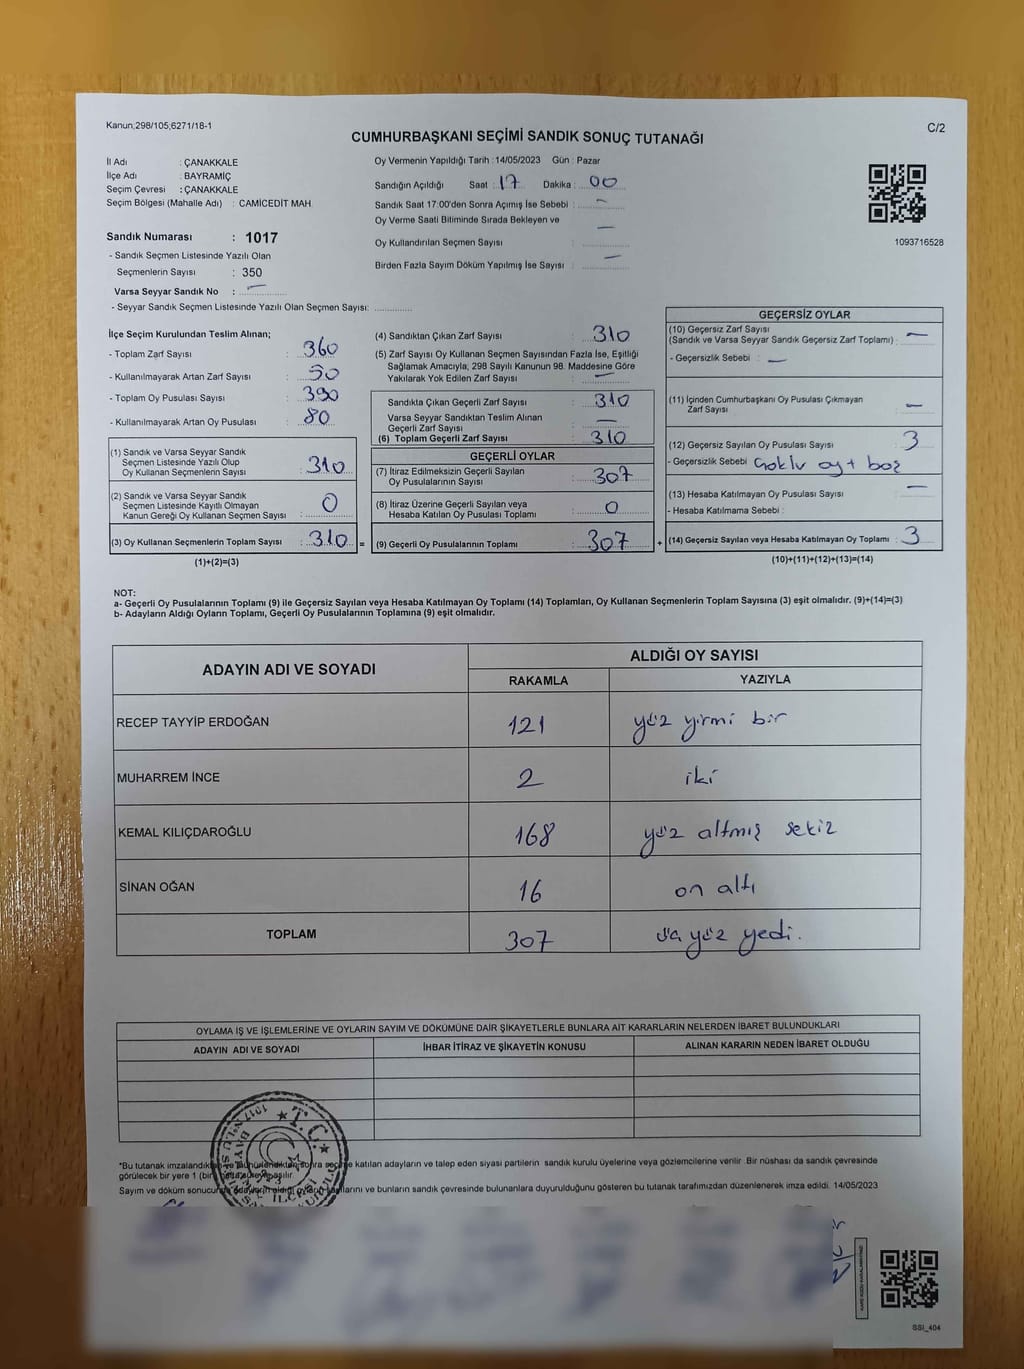 Kanun;298/105;6271/18-1
C/2
CUMHURBAŞKANI SEÇİMİ SANDIK SONUÇ TUTANAĞI
İl Adı : ÇANAKKALE
İlçe Adı : BAYRAMİÇ
Seçim Çevresi : ÇANAKKALE
Seçim Bölgesi (Mahalle Adı) : CAMİCEDİT MAH.
Sandık Numarası : 1017
- Sandık Seçmen Listesinde Yazılı Olan
Seçmenlerin Sayısı : 350
Varsa Seyyar Sandık No : —
- Seyyar Sandık Seçmen Listesinde Yazılı Olan Seçmen Sayısı: ............
Oy Vermenin Yapıldığı Tarih : 14/05/2023 Gün : Pazar
Sandığın Açıldığı Saat : 17 Dakika : 00
Sandık Saat 17:00'den Sonra Açımış İse Sebebi : —
Oy Verme Saati Bitiminde Sırada Bekleyen ve
Oy Kullandırılan Seçmen Sayısı : —
Birden Fazla Sayım Döküm Yapılmış İse Sayısı : —
1093716528
İlçe Seçim Kurulundan Teslim Alınan;
- Toplam Zarf Sayısı : 360
- Kullanılmayarak Artan Zarf Sayısı : 50
- Toplam Oy Pusulası Sayısı : 390
- Kullanılmayarak Artan Oy Pusulası : 80
(1) Sandık ve Varsa Seyyar Sandık
Seçmen Listesinde Yazılı Olup
Oy Kullanan Seçmenlerin Sayısı : 310
(2) Sandık ve Varsa Seyyar Sandık
Seçmen Listesinde Kayıtlı Olmayan
Kanun Gereği Oy Kullanan Seçmen Sayısı : 0
(3) Oy Kullanan Seçmenlerin Toplam Sayısı : 310 =
(1)+(2)=(3)
(4) Sandıktan Çıkan Zarf Sayısı : 310
(5) Zarf Sayısı Oy Kullanan Seçmen Sayısından Fazla İse, Eşitliği
Sağlamak Amacıyla; 298 Sayılı Kanunun 98. Maddesine Göre
Yakılarak Yok Edilen Zarf Sayısı : —
Sandıkta Çıkan Geçerli Zarf Sayısı : 310
Varsa Seyyar Sandıktan Teslim Alınan
Geçerli Zarf Sayısı : —
(6) Toplam Geçerli Zarf Sayısı : 310
GEÇERLİ OYLAR
(7) İtiraz Edilmeksizin Geçerli Sayılan
Oy Pusulalarının Sayısı : 307
(8) İtiraz Üzerine Geçerli Sayılan veya
Hesaba Katılan Oy Pusulası Toplamı : 0
(9) Geçerli Oy Pusulalarının Toplamı : 307 +
GEÇERSİZ OYLAR
(10) Geçersiz Zarf Sayısı
(Sandık ve Varsa Seyyar Sandık Geçersiz Zarf Toplamı) : —
- Geçersizlik Sebebi : —
(11) İçinden Cumhurbaşkanı Oy Pusulası Çıkmayan
Zarf Sayısı : —
(12) Geçersiz Sayılan Oy Pusulası Sayısı : 3
- Geçersizlik Sebebi : çoklu oy + boş
(13) Hesaba Katılmayan Oy Pusulası Sayısı : —
- Hesaba Katılmama Sebebi :
(14) Geçersiz Sayılan veya Hesaba Katılmayan Oy Toplamı : 3
(10)+(11)+(12)+(13)=(14)
NOT:
a- Geçerli Oy Pusulalarının Toplamı (9) ile Geçersiz Sayılan veya Hesaba Katılmayan Oy Toplamı (14) Toplamları, Oy Kullanan Seçmenlerin Toplam Sayısına (3) eşit olmalıdır. (9)+(14)=(3)
b- Adayların Aldığı Oyların Toplamı, Geçerli Oy Pusulalarının Toplamına (9) eşit olmalıdır.
ADAYIN ADI VE SOYADI
ALDIĞI OY SAYISI
RAKAMLA YAZIYLA
RECEP TAYYİP ERDOĞAN 121 yüz yirmi bir
MUHARREM İNCE 2 iki
KEMAL KILIÇDAROĞLU 168 yüz altmış sekiz
SİNAN OĞAN 16 on altı
TOPLAM 307 üç yüz yedi.
OYLAMA İŞ VE İŞLEMLERİNE VE OYLARIN SAYIM VE DÖKÜMÜNE DAİR ŞİKAYETLERLE BUNLARA AİT KARARLARIN NELERDEN İBARET BULUNDUKLARI
ADAYIN ADI VE SOYADI İHBAR İTİRAZ VE ŞİKAYETİN KONUSU ALINAN KARARIN NEDEN İBARET OLDUĞU
*Bu tutanak imzalandıktan ve mühürlendikten sonra seçime katılan adayların ve talep eden siyasi partilerin sandık kurulu üyelerine veya gözlemcilerine verilir. Bir nüshası da sandık çevresinde
görülecek bir yere 1 (bir) asılır.
Sayım ve döküm sonucunda adayların aldığı oyların ve bunların sandık çevresinde bulunanlara duyurulduğunu gösteren bu tutanak tarafımızdan düzenlenerek imza edildi. 14/05/2023
T.C.
SSI_404